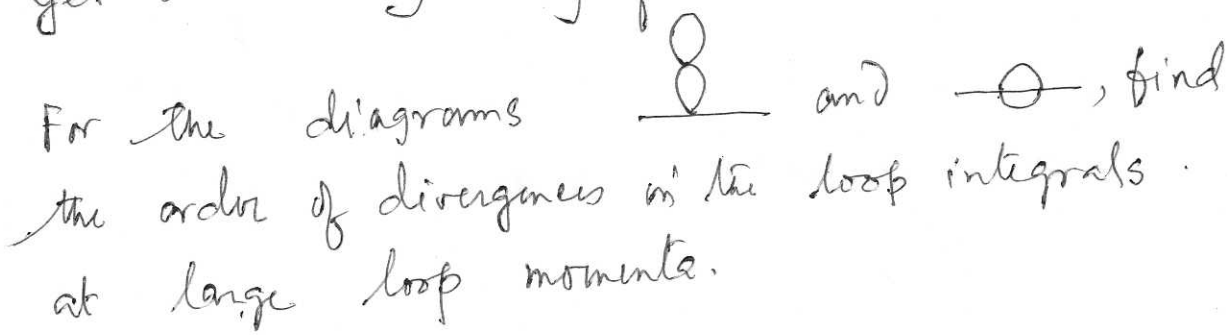 For the diagrams and , find
the order of divergences in the loop integrals.
at large loop momenta.